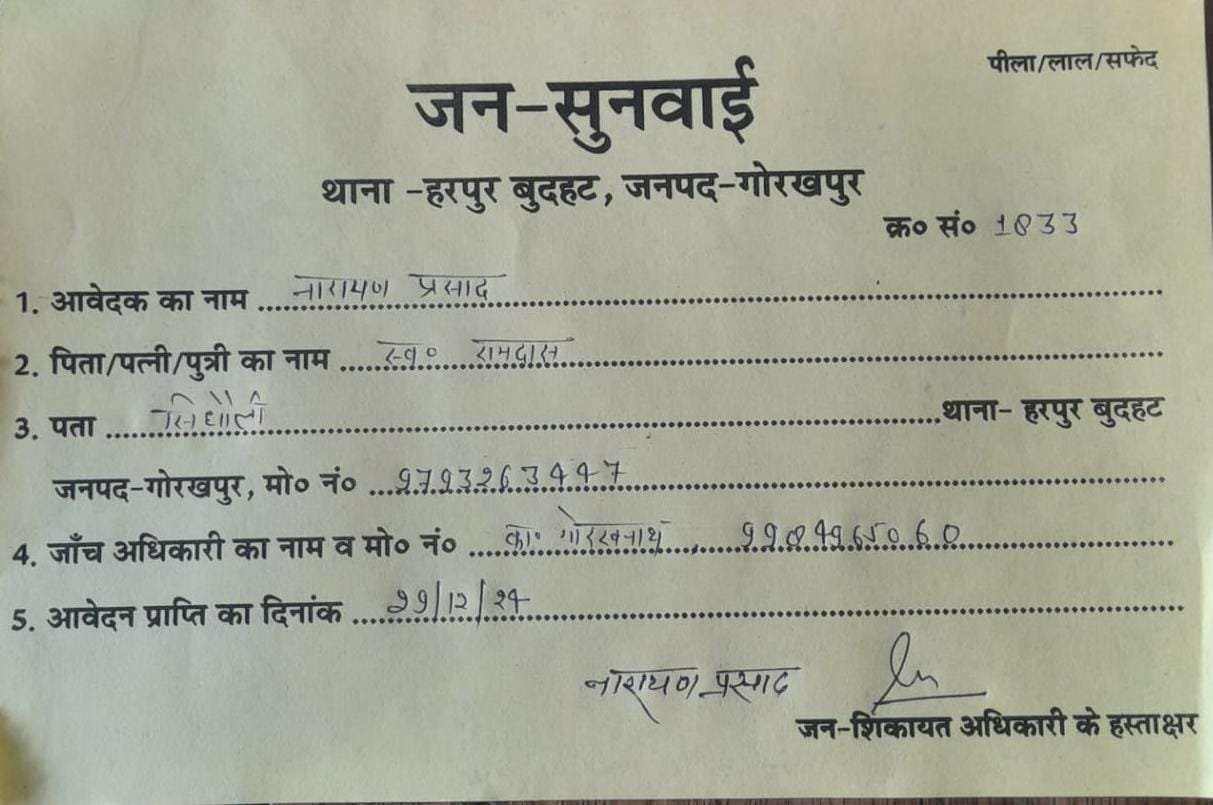 पीला/लाल/सफेद
जन-सुनवाई
थाना -हरपुर बुदहट, जनपद-गोरखपुर
क्र० सं० 1833
1. आवेदक का नाम नारायण प्रसाद
2. पिता/पत्नी/पुत्री का नाम स्व० रामदास
3. पता सिधौली थाना- हरपुर बुदहट
जनपद-गोरखपुर, मो० नं०
4. जाँच अधिकारी का नाम व मो० नं० का० गोरखनाथ
5. आवेदन प्राप्ति का दिनांक 29/12/24
नारायण प्रसाद
जन-शिकायत अधिकारी के हस्ताक्षर